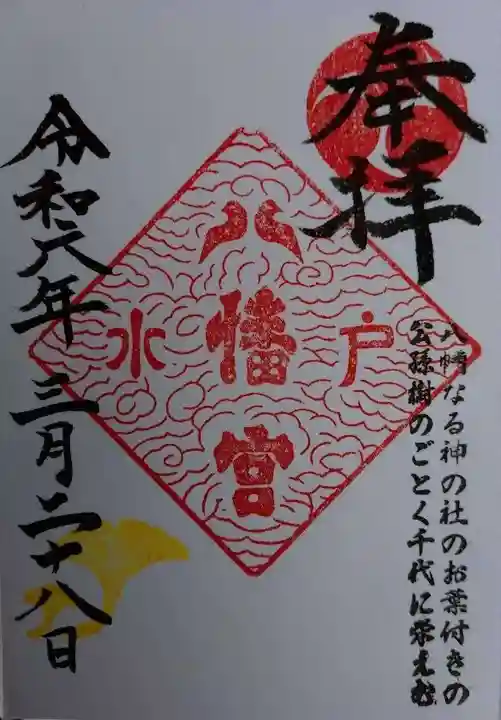 奉拝
八幡なる神の社のお葉付きの
公孫樹のごとく千代に栄えむ
水戸
八幡宮
令和六年 三月二十八日